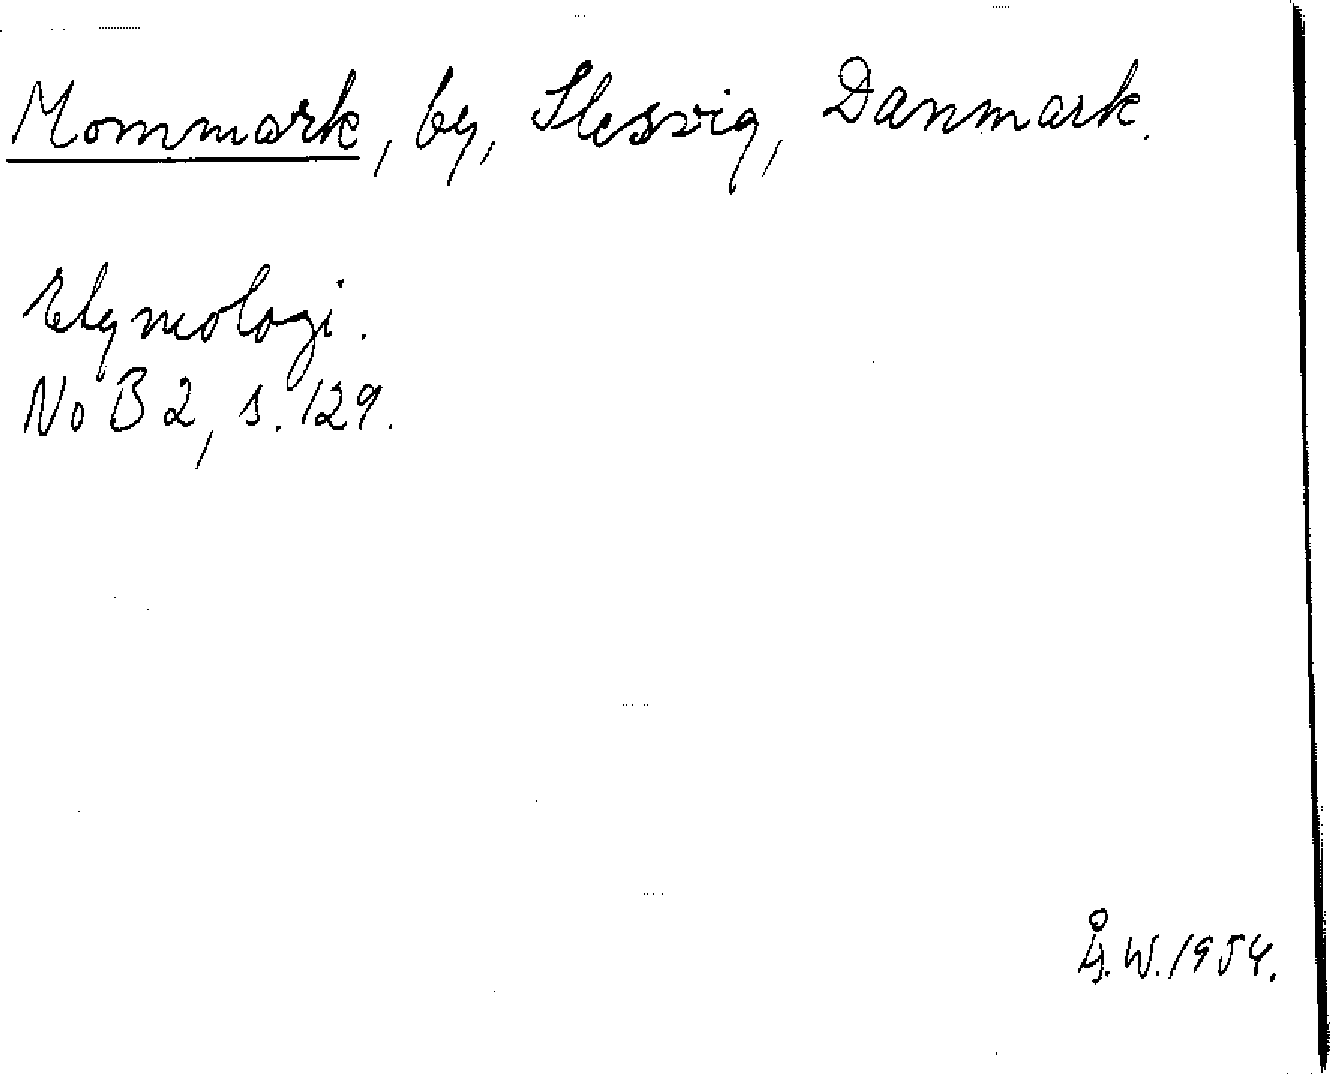 Mommark, by, Slesvig, Danmark.
Etymologi.
NoB 2, s. 129.
Å.W. 1954.